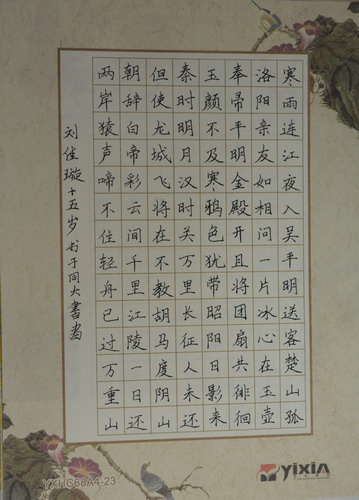 寒雨连江夜入吴平明送客楚山孤
洛阳亲友如相问一片冰心在玉壶
奉帚平明金殿开且将团扇共徘徊
玉颜不及寒鸦色犹带昭阳日影来
秦时明月汉时关万里长征人未还
但使龙城飞将在不教胡马度阴山
朝辞白帝彩云间千里江陵一日还
两岸猿声啼不住轻舟已过万重山
刘佳璇十五岁书于同大書
YXHC68A4-23
yixin